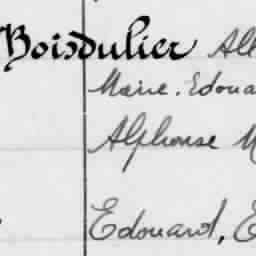 Boisdulier All
Marie. Edoua
Alphonse M
Edouard, E